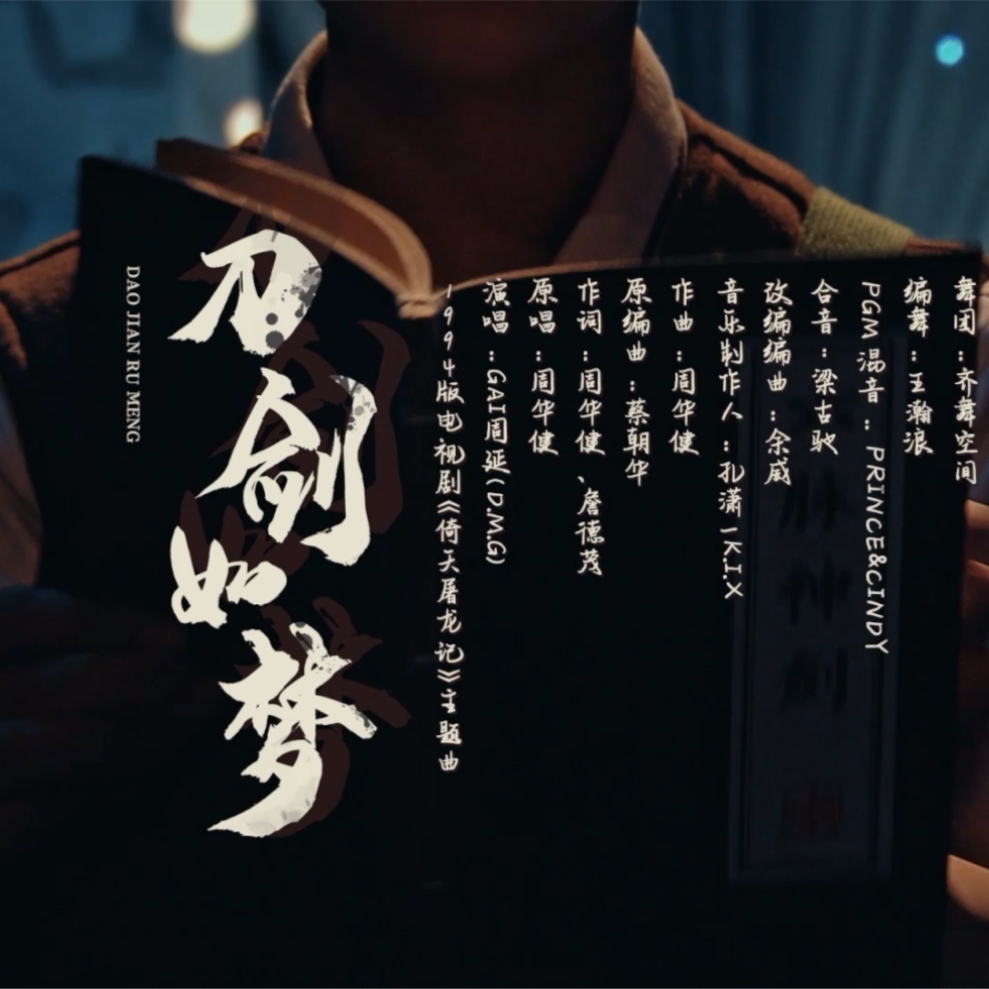 刀剑如梦
DAO JIAN RU MENG
1994版电视剧《倚天屠龙记》主题曲
演唱：GAI周延(D.M.G)
原唱：周华健
作词：周华健、詹德茂
原编曲：蔡朝华
作曲：周华健
音乐制作人：孔潇一K.I.X
改编编曲：余威
合音：梁古驰
PGM 混音：PRINCE&CINDY
编舞：王瀚浪
舞团：齐舞空间